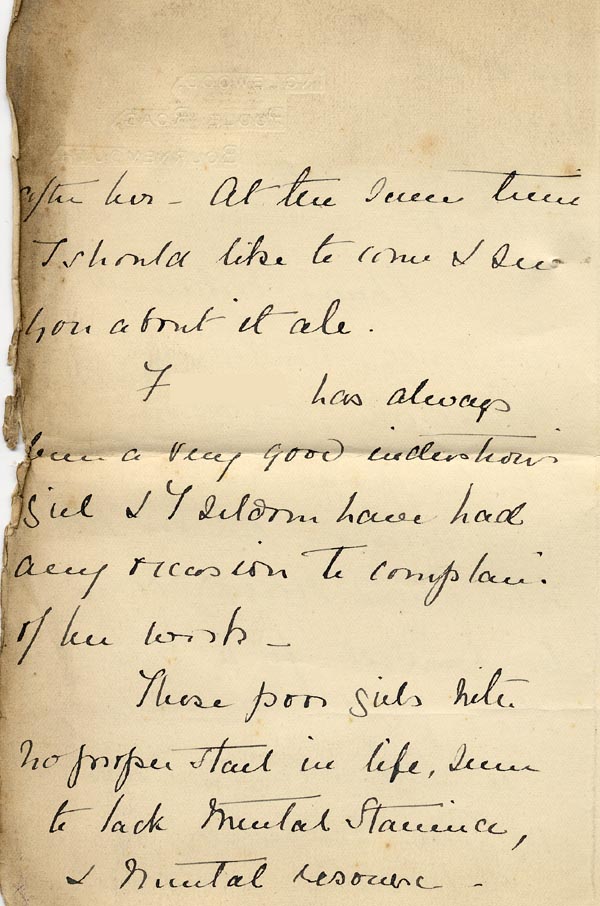 INGLEWOOD
POOLE ROAD.
BOURNEMOUTH.
after her - At the same time
I should like to come & see
you about it all.
F has always
been a very good industrious
girl & I seldom have had
any occasion to complain
of her work -
These poor girls with
no proper start in life, seem
to lack Mental Stamina,
& Mental resource -